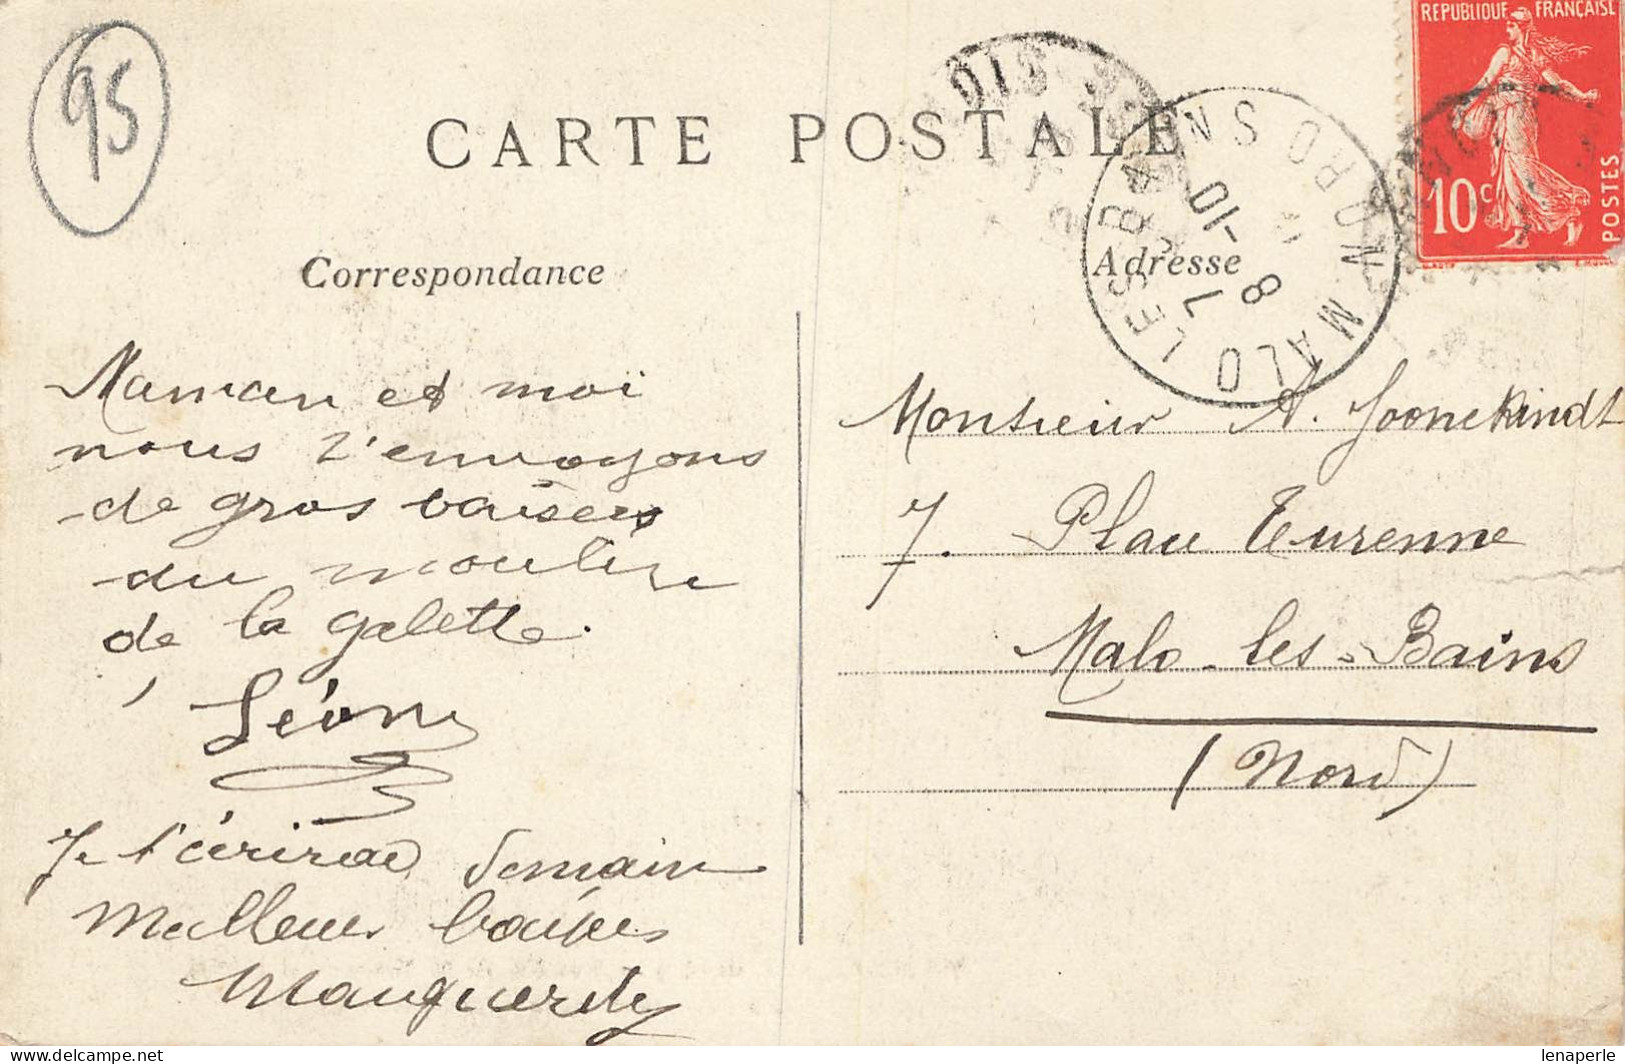 95
CARTE POSTALE
REPUBLIQUE FRANÇAISE
10c
POSTES
MALO LES BAINS NORD
7
8 -10
Correspondance
Adresse
Maman et moi
nous t'envoyons
de gros baisers
du moulin
de la galette.
Léon
Je t'écrirai demain
Meilleurs baisers
Marguerite
Monsieur A.
7. Place Turenne
Malo-les-Bains
(Nord)
lenaperle